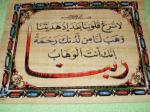 لا تزغ قلوبنا بعد إذ هديتنا
وهب لنا من لدنك رحمة
إنك أنت الوهاب
ربنا